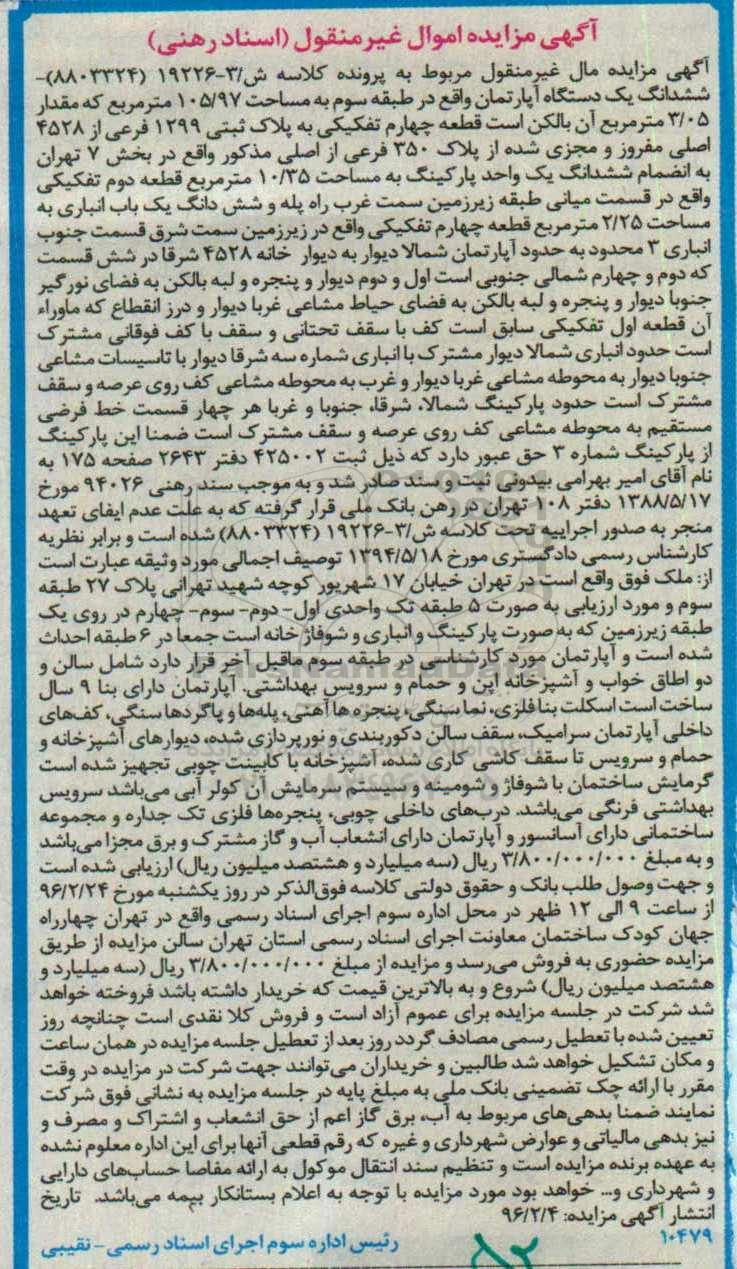 آگهی مزایده اموال غیرمنقول (اسناد رهنی)
آگهی مزایده مال غیرمنقول مربوط به پرونده کلاسه ش/۳-۱۹۲۲۶ (۸۸۰۳۳۲۴)-
ششدانگ یک دستگاه آپارتمان واقع در طبقه سوم به مساحت ۱۰۵/۹۷ مترمربع که مقدار
۳/۰۵ مترمربع آن بالکن است قطعه چهارم تفکیکی به پلاک ثبتی ۱۲۹۹ فرعی از ۴۵۲۸
اصلی مفروز و مجزی شده از پلاک ۳۵۰ فرعی از اصلی مذکور واقع در بخش ۷ تهران
به انضمام ششدانگ یک واحد پارکینگ به مساحت ۱۰/۳۵ مترمربع قطعه دوم تفکیکی
واقع در قسمت میانی طبقه زیرزمین سمت غرب راه پله و شش دانگ یک باب انباری به
مساحت ۲/۲۵ مترمربع قطعه چهارم تفکیکی واقع در زیرزمین سمت شرق قسمت جنوب
انباری ۳ محدود به حدود آپارتمان شمالا دیوار به دیوار خانه ۴۵۲۸ شرقا در شش قسمت
که دوم و چهارم شمالی جنوبی است اول و دوم دیوار و پنجره و لبه بالکن به فضای نورگیر
جنوبا دیوار و پنجره و لبه بالکن به فضای حیاط مشاعی غربا دیوار و درز انقطاع که ماوراء
آن قطعه اول تفکیکی سابق است کف با سقف تحتانی و سقف با کف فوقانی مشترک
است حدود انباری شمالا دیوار مشترک با انباری شماره سه شرقا دیوار با تاسیسات مشاعی
جنوبا دیوار به محوطه مشاعی غربا دیوار و غرب به محوطه مشاعی کف روی عرصه و سقف
مشترک است حدود پارکینگ شمالا، شرقا، جنوبا و غربا هر چهار قسمت خط فرضی
مستقیم به محوطه مشاعی کف روی عرصه و سقف مشترک است ضمنا این پارکینگ
از پارکینگ شماره ۳ حق عبور دارد که ذیل ثبت ۴۲۵۰۰۲ دفتر ۲۶۴۳ صفحه ۱۷۵ به
نام آقای امیر بهرامی بیدونی ثبت و سند صادر شد و به موجب سند رهنی ۹۴۰۲۶ مورخ
۱۳۸۸/۵/۱۷ دفتر ۱۰۸ تهران در رهن بانک ملی قرار گرفته که به علت عدم ایفای تعهد
منجر به صدور اجراییه تحت کلاسه ش/۳-۱۹۲۲۶ (۸۸۰۳۳۲۴) شده است و برابر نظریه
کارشناس رسمی دادگستری مورخ ۱۳۹۴/۵/۱۸ توصیف اجمالی مورد وثیقه عبارت است
از: ملک فوق واقع است در تهران خیابان ۱۷ شهریور کوچه شهید تهرانی پلاک ۲۷ طبقه
سوم و مورد ارزیابی به صورت ۵ طبقه تک واحدی اول- دوم- سوم- چهارم در روی یک
طبقه زیرزمین که به صورت پارکینگ و انباری و شوفاژ خانه است جمعا در ۶ طبقه احداث
شده است و آپارتمان مورد کارشناسی در طبقه سوم ماقبل آخر قرار دارد شامل سالن و
دو اطاق خواب و آشپزخانه اپن و حمام و سرویس بهداشتی. آپارتمان دارای بنا ۹ سال
ساخت است اسکلت بنا فلزی، نما سنگی، پنجره ها آهنی، پله‌ها و پاگردها سنگی، کف‌های
داخلی آپارتمان سرامیک، سقف سالن دکوربندی و نورپردازی شده، دیوارهای آشپزخانه و
حمام و سرویس تا سقف کاشی کاری شده، آشپزخانه با کابینت چوبی تجهیز شده است
گرمایش ساختمان با شوفاژ و شومینه و سیستم سرمایش آن کولر آبی می‌باشد سرویس
بهداشتی فرنگی می‌باشد. درب‌های داخلی چوبی، پنجره‌ها فلزی تک جداره و مجموعه
ساختمانی دارای آسانسور و آپارتمان دارای انشعاب آب و گاز مشترک و برق مجزا می‌باشد
و به مبلغ ۳/۸۰۰/۰۰۰/۰۰۰ ریال (سه میلیارد و هشتصد میلیون ریال) ارزیابی شده است
و جهت وصول طلب بانک و حقوق دولتی کلاسه فوق‌الذکر در روز یکشنبه مورخ ۹۶/۲/۲۴
از ساعت ۹ الی ۱۲ ظهر در محل اداره سوم اجرای اسناد رسمی واقع در تهران چهارراه
جهان کودک ساختمان معاونت اجرای اسناد رسمی استان تهران سالن مزایده از طریق
مزایده حضوری به فروش می‌رسد و مزایده از مبلغ ۳/۸۰۰/۰۰۰/۰۰۰ ریال (سه میلیارد و
هشتصد میلیون ریال) شروع و به بالاترین قیمت که خریدار داشته باشد فروخته خواهد
شد شرکت در جلسه مزایده برای عموم آزاد است و فروش کلا نقدی است چنانچه روز
تعیین شده با تعطیل رسمی مصادف گردد روز بعد از تعطیل جلسه مزایده در همان ساعت
و مکان تشکیل خواهد شد طالبین و خریداران می‌توانند جهت شرکت در مزایده در وقت
مقرر با ارائه چک تضمینی بانک ملی به مبلغ پایه در جلسه مزایده به نشانی فوق شرکت
نمایند ضمنا بدهی‌های مربوط به آب، برق گاز اعم از حق انشعاب و اشتراک و مصرف و
نیز بدهی مالیاتی و عوارض شهرداری و غیره که رقم قطعی آنها برای این اداره معلوم نشده
به عهده برنده مزایده است و تنظیم سند انتقال موکول به ارائه مفاصا حساب‌های دارایی
و شهرداری و... خواهد بود مورد مزایده با توجه به اعلام بستانکار بیمه می‌باشد. تاریخ
انتشار آگهی مزایده: ۹۶/۲/۴
۱۰۴۷۹ رئیس اداره سوم اجرای اسناد رسمی - نقیبی